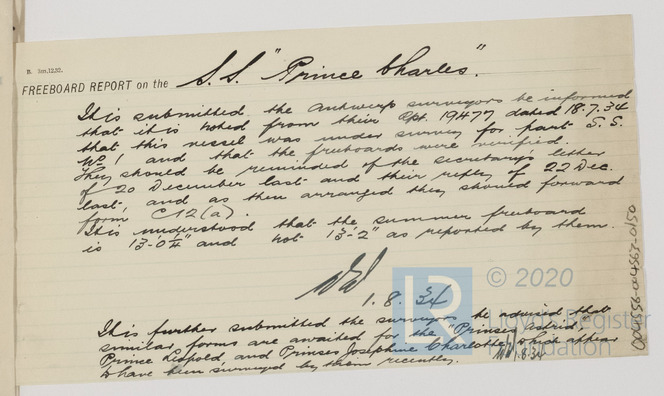 R. 3m,12,32.
FREEBOARD REPORT on the S.S. "Prince Charles".
It is submitted the Antwerp surveyors be informed
that it is noted from their Rpt. 19477 dated 18.7.34
that this vessel was under survey for part S.S.
No 1 and that the freeboards were verified.
They should be reminded of the secretary's letter
of 20 December last and their reply of 22 Dec.
last, and as then arranged they should forward
form C12(a).
It is understood that the summer freeboard
is 13'-0¼" and not 13'-2" as reported by them.
1.8.34
It is further submitted the surveyors be advised that
similar forms are awaited for the "Prinses Astrid",
Prince Leopold, and Prinses Josephine Charlotte, which appear
to have been surveyed by them recently.
1.8.34
LR
© 2020
Lloyd's Register
Foundation
004556-004567-0150